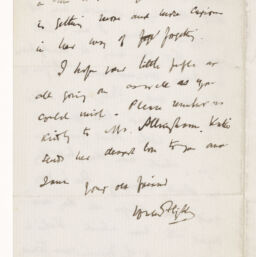 is getting more and more
in her way of forgetting.
I hope your little people are
all going on as well as you
could wish. Please remember us
kindly to Mr. Allingham. Kate
sends her dearest love to you and
I am your old friend